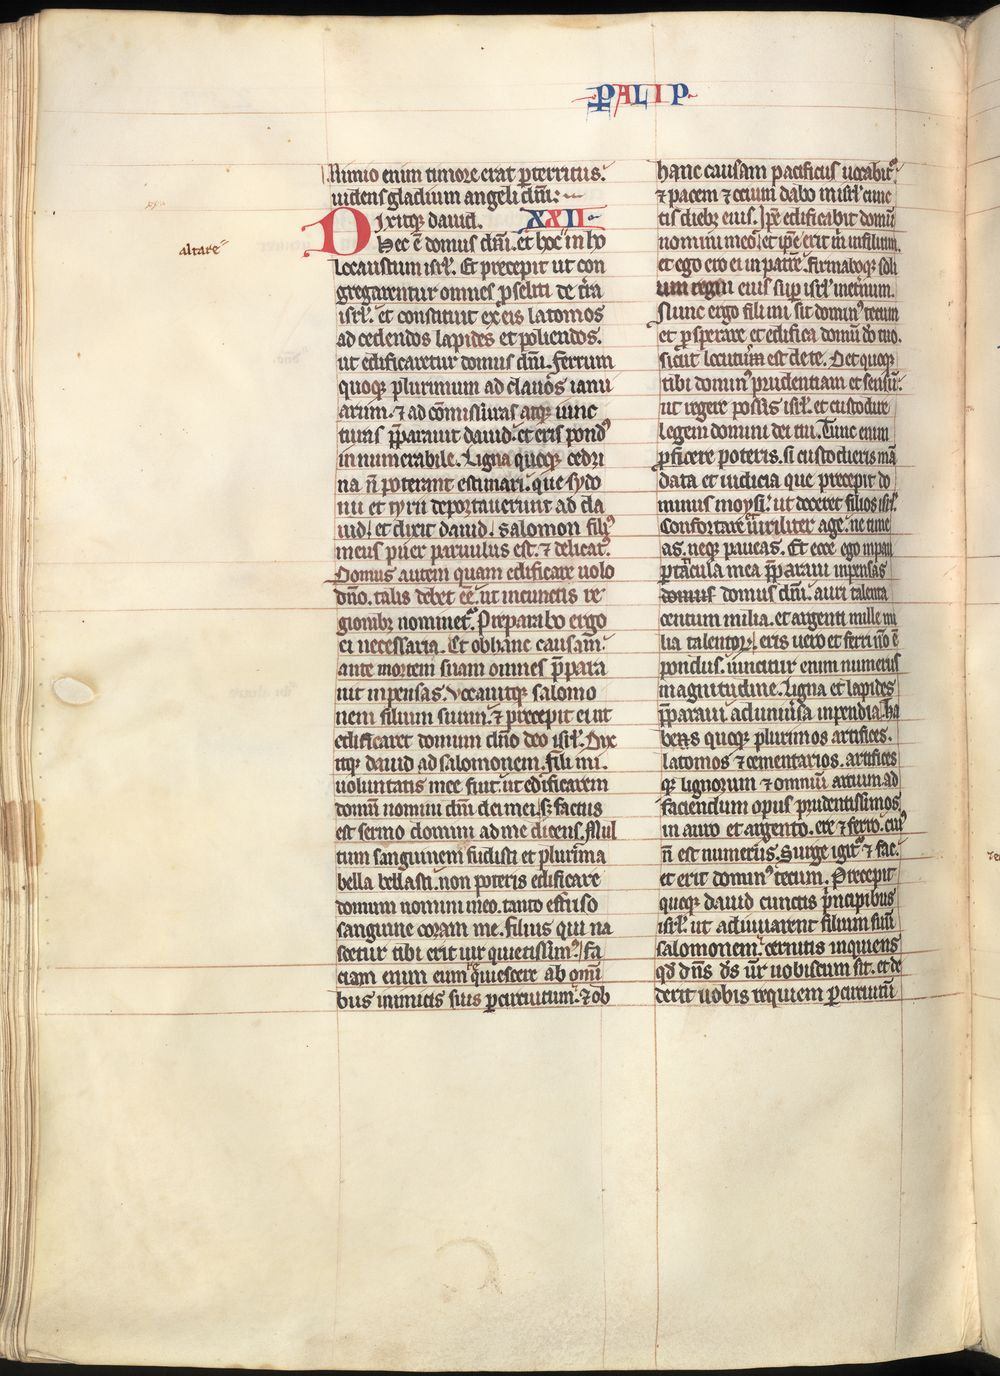 PALIP
Nimio enim timore erat pterritus.
uidens gladium angeli dñi.
Dixitque dauid. XXII
Hec ẽ domus dñi. et hoc in ho
altare
locaustum isrl̃. Et precepit ut con
gregarentur omnes pseliti de tr̃a
isrl̃. et constituit ex eis latomos
ad cedendos lapides et poliendos.
ut edificaretur domus dñi. Ferrum
quoq; plurimum ad clauos ianu
arum. ⁊ ad cõmissuras atq; iunc
turas p̃parauit dauid. et eris pondꝰ
innumerabile. Ligna quoq; cedri
na ñ poterant estimari. que sydo
nii et tyrii deportauerunt ad da
uid. et dixit dauid. Salomon filiꝰ
meus puer paruulus est. ⁊ delicatꝰ.
Domus autem quam edificare uolo
dño. talis debet eẽ. ut in cunctis re
gionibꝫ nominet᷑. Preparabo ergo
ei necessaria. Et ob hanc causam
ante mortem suam omnes p̃para
uit inpensas. Vocauitq; salomo
nem filium suum. ⁊ precepit ei ut
edificaret domum dño deo isrl̃. Dix
itq; dauid ad salomonem. Fili mi.
uoluntatis mee fuit. ut edificarem
domũ nomini dñi dei mei. sꝫ factus
est sermo domini ad me dicens. Mul
tum sanguinem fudisti et plurima
bella bellasti. non poteris edificare
domum nomini meo. tanto effuso
sanguine coram me. filius qui na
scetur tibi erit uir quietissimꝰ. fa
ciam enim eum requiescere ab omni
bus inimicis suis p circuitum. ⁊ ob
hanc causam pacificus uocabit᷑.
⁊ pacem ⁊ ocium dabo in isrl̃ cunc
tis diebꝫ eius. Ip̃e edificabit domũ
nomini meo. et ip̃e erit m̃ in filium.
et ego ero ei in patrẽ. firmaboq; soli
um regni eius sup isrl̃ in eternum.
Nunc ergo fili mi. sit dominꝰ tecum
et psperare et edifica domũ dõ tuo.
sicut locutus est de te. Det quoq;
tibi dominꝰ prudentiam et sensũ.
ut regere possis isrl̃. et custodire
legem domini dei tui. Tunc enim
pficere poteris. si custodieris mã
data et iudicia que precepit do
minus moysi. ut doceret filios isrl̃.
Confortare uiriliter age. ne time
as. neq; paueas. Et ecce ego in pau
ptacula mea p̃paraui inpensas
domus domus dñi. auri talenta
centum milia. et argenti mille mi
lia talentoꝝ. eris uero et ferri ñ ẽ
pondus. uincitur enim numerus
magnitudine. Ligna et lapides
p̃paraui ad uniũsa inpendia. ha
bens quoq; plurimos artifices.
latomos ⁊ cementarios. artifices
q; lignorum ⁊ omniũ artium ad
faciendum opus prudentissimos
in auro et argento. ere ⁊ ferro. cuiꝰ
ñ est numerus. Surge igit᷑ ⁊ fac.
et erit dominꝰ tecum. Precepit
quoq; dauid cunctis p̃ncipibus
isrl̃. ut adiuuarent filium suũ
salomonem. cernitis inquiens
qđ dñs ds ur̃ uobiscum sit. et de
derit uobis requiem p circuitũ